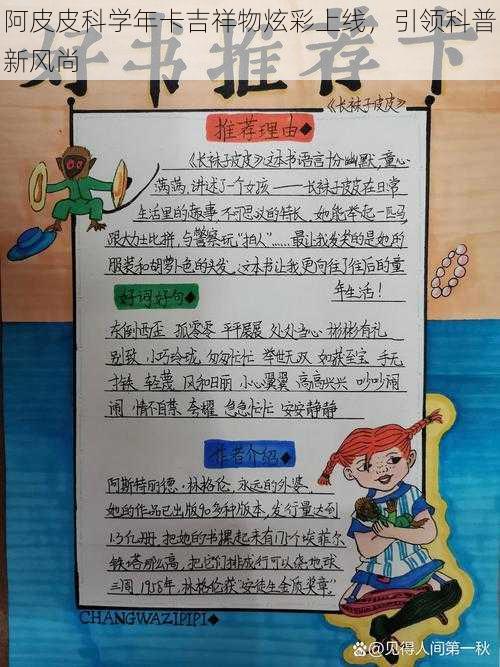 阿皮皮科学年卡吉祥物炫彩上线，引领科普
新风尚
好书推荐卡
《长袜子皮皮》
推荐理由◆
《长袜子皮皮》这本书语言十分幽默，童心
满满，讲述了一个女孩——长袜子皮皮在日常
生活里的趣事，不可思议的特长，她能举起一匹马
跟大力士比拼，与警察玩“拍人”……最让我发笑的是她的
服装和胡萝卜色的头发，这本书让我更向往了往后的童
年生活！
好词好句◆
东倒西歪 孤零零 平平展展 处处当心 彬彬有礼
别致 小巧玲珑 匆匆忙忙 举世无双 如获至宝 手无
寸铁 轻蔑 风和日丽 小心翼翼 高高兴兴 吵吵闹
闹 情不自禁 夸耀 急急忙忙 安安静静
作者介绍◆
阿斯特丽德·林格伦，永远的外婆，
她的作品已出版90多种版本，发行量达到
1.3亿册，把她的书摞起来有171个埃菲尔
铁塔那么高，把它们排成行可以绕地球
三周，1958年，林格伦获“安徒生金质奖章”。
CHANGWAZIPIPI◆
@见得人间第一秋